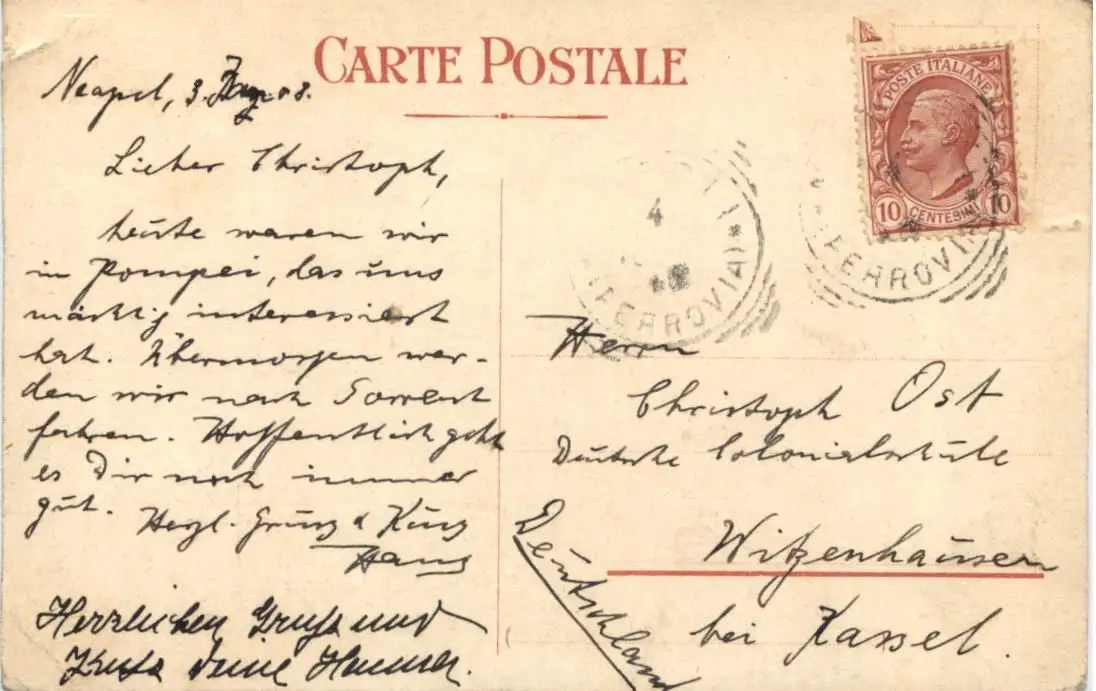 CARTE POSTALE
Neapel, 3. 08.
Lieber Christoph,
heute waren wir
in Pompei, das uns
mächtig interessiert
hat. Übermorgen wer-
den wir nach Sorrent
fahren. Hoffentlich geht
es Dir noch immer
gut. Herzl. Gruss & Kuss
Hans
Herzlichen Gruß und
Kuß Deine
POSTE ITALIANE
10 CENTESIMI 10
4
(FERROVIA)
(FERROVIA)
Herrn
Christoph Ost
Deutsche Colonialschule
Witzenhausen
bei Kassel.
Deutschland